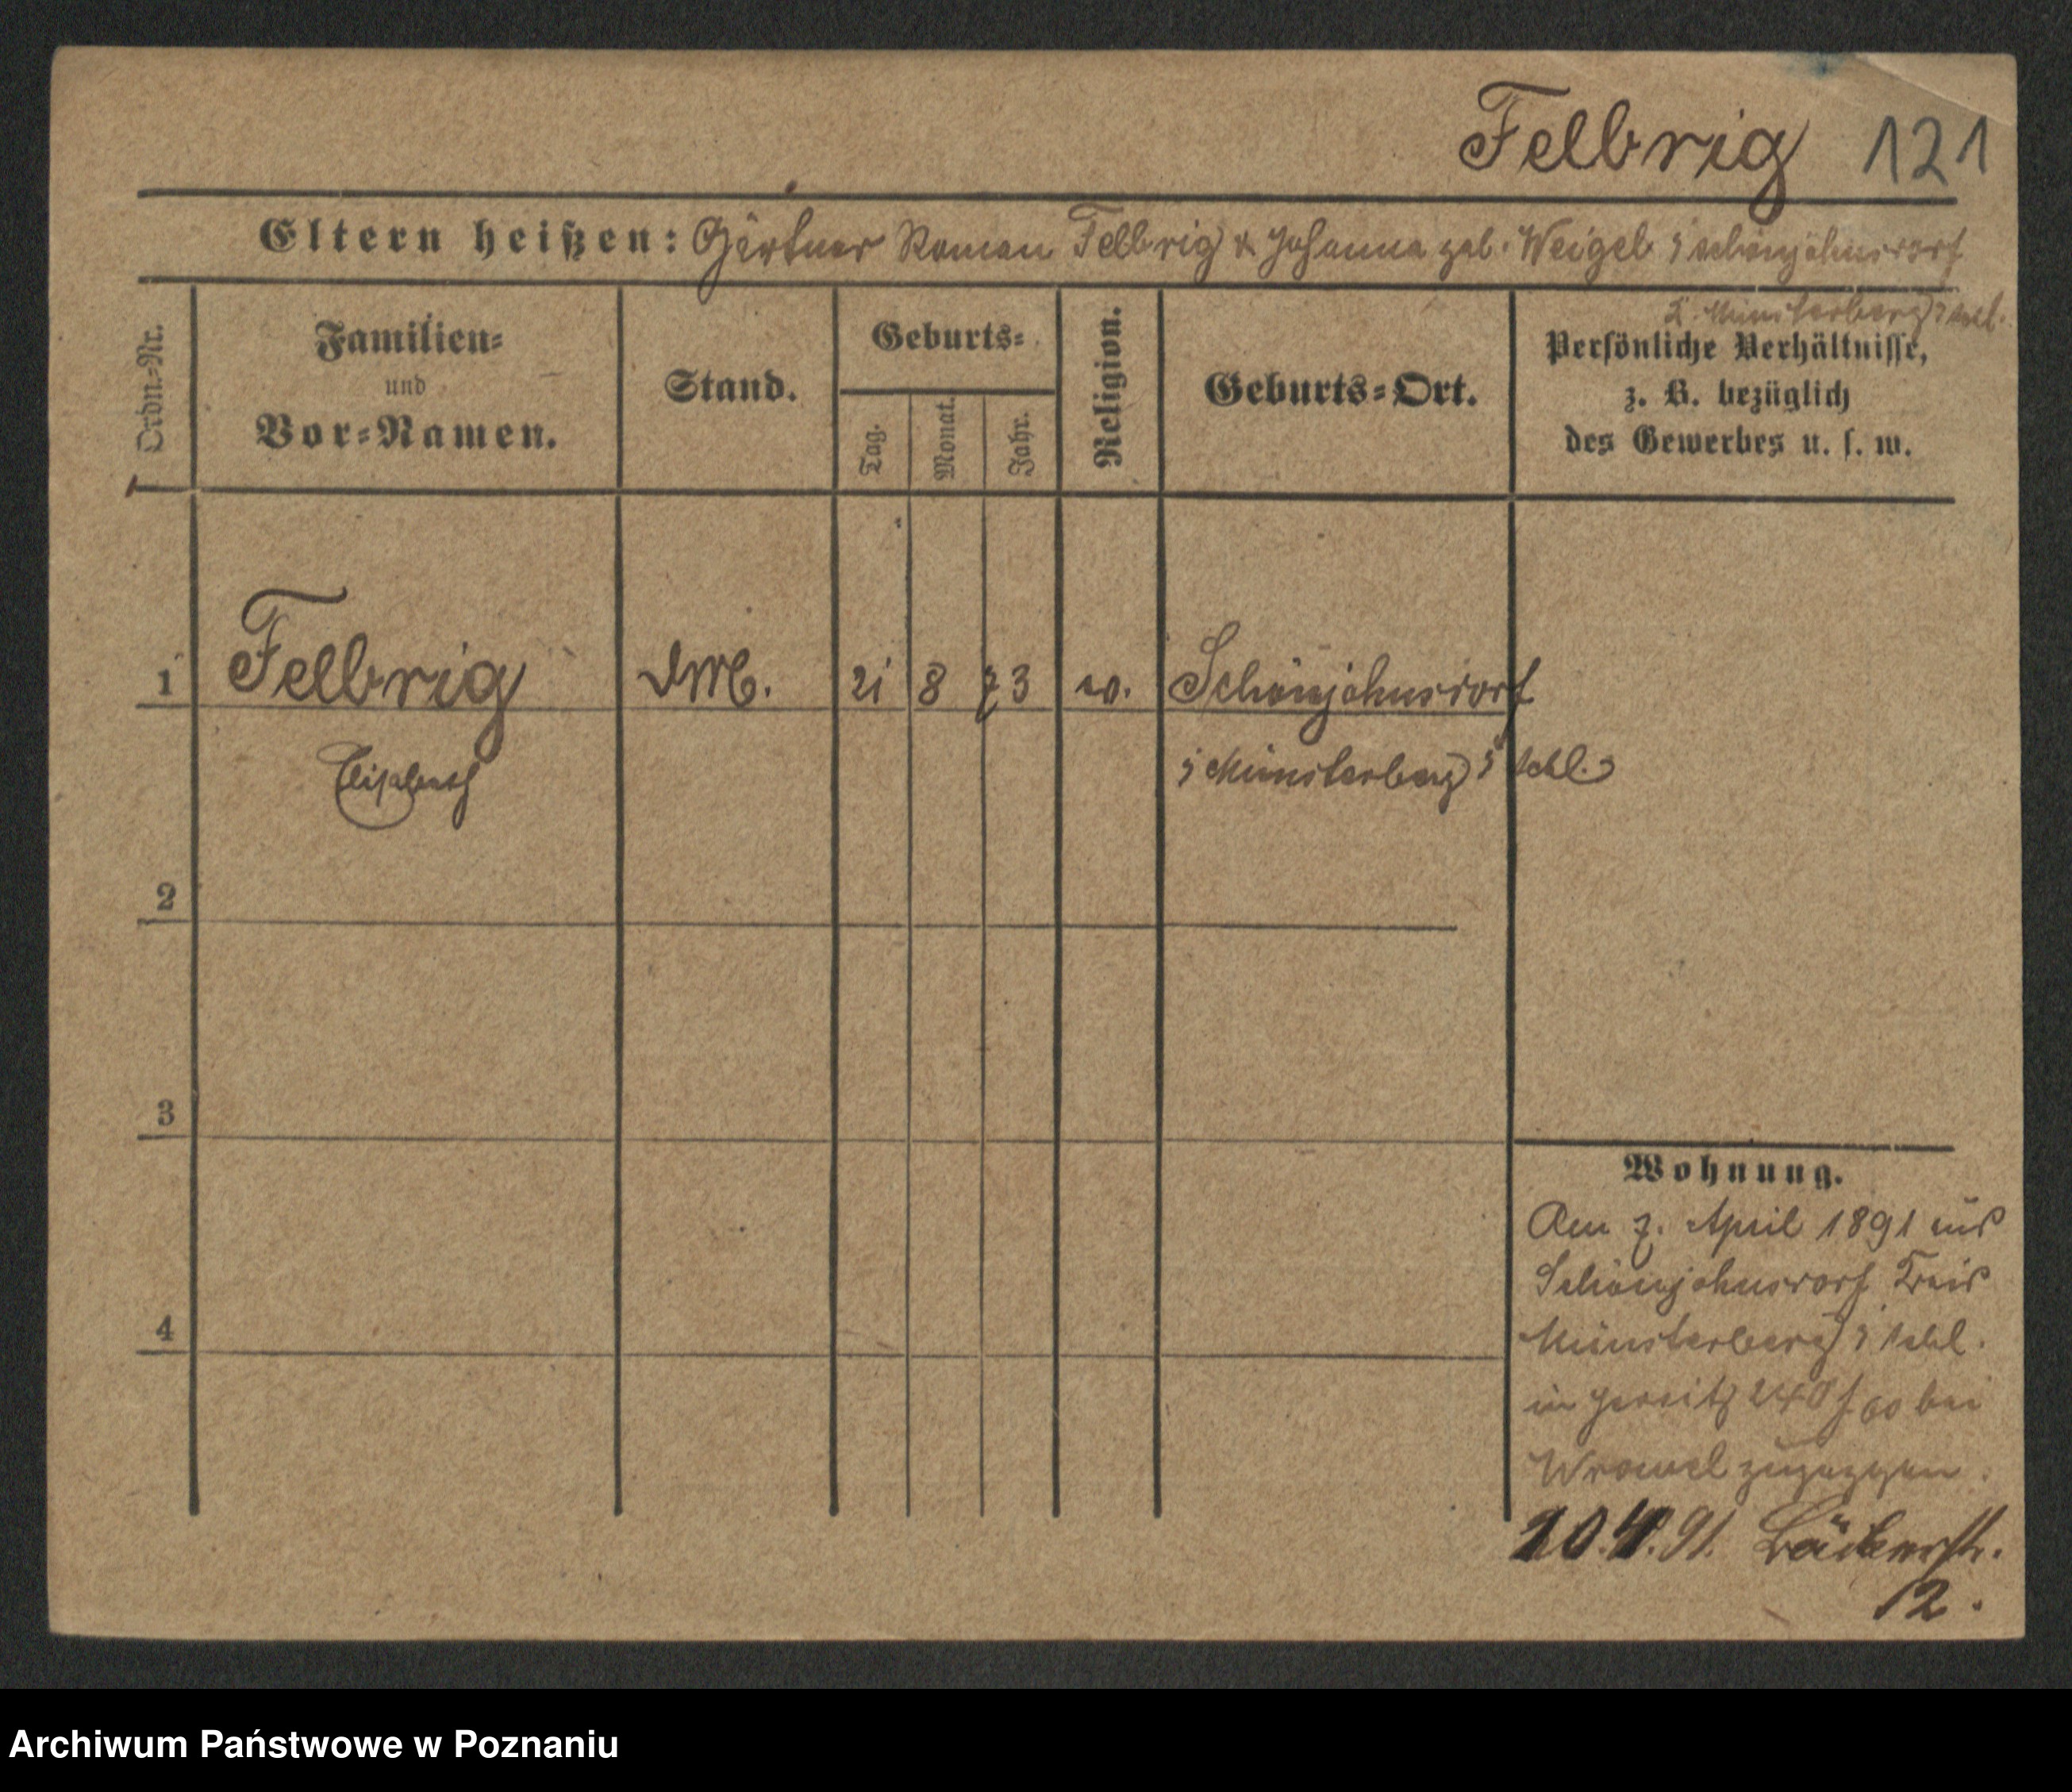 Felbrig 121
Eltern heißen: Gärtner Roman Felbrig & Johanna geb. Weigel i Schönjohnsdorf
Münsterberg i Schl.
Ordn.-Nr.
Familien-
und
Vor-Namen.
Stand.
Geburts-
Tag. Monat. Jahr.
Religion.
Geburts-Ort.
Persönliche Verhältnisse,
z. B. bezüglich
des Gewerbes u. s. w.
1 Felbrig DM. 21 8 73 Schönjohnsdorf
Elisabeth i Münsterberg i Schl.
2
3
4
Wohnung.
Am 7. April 1891 aus
Schönjohnsdorf Kreis
Münsterberg i Schl.
in Jersitz bei
zugezogen.
10.4.91. Bäckerstr.
12.
Archiwum Państwowe w Poznaniu